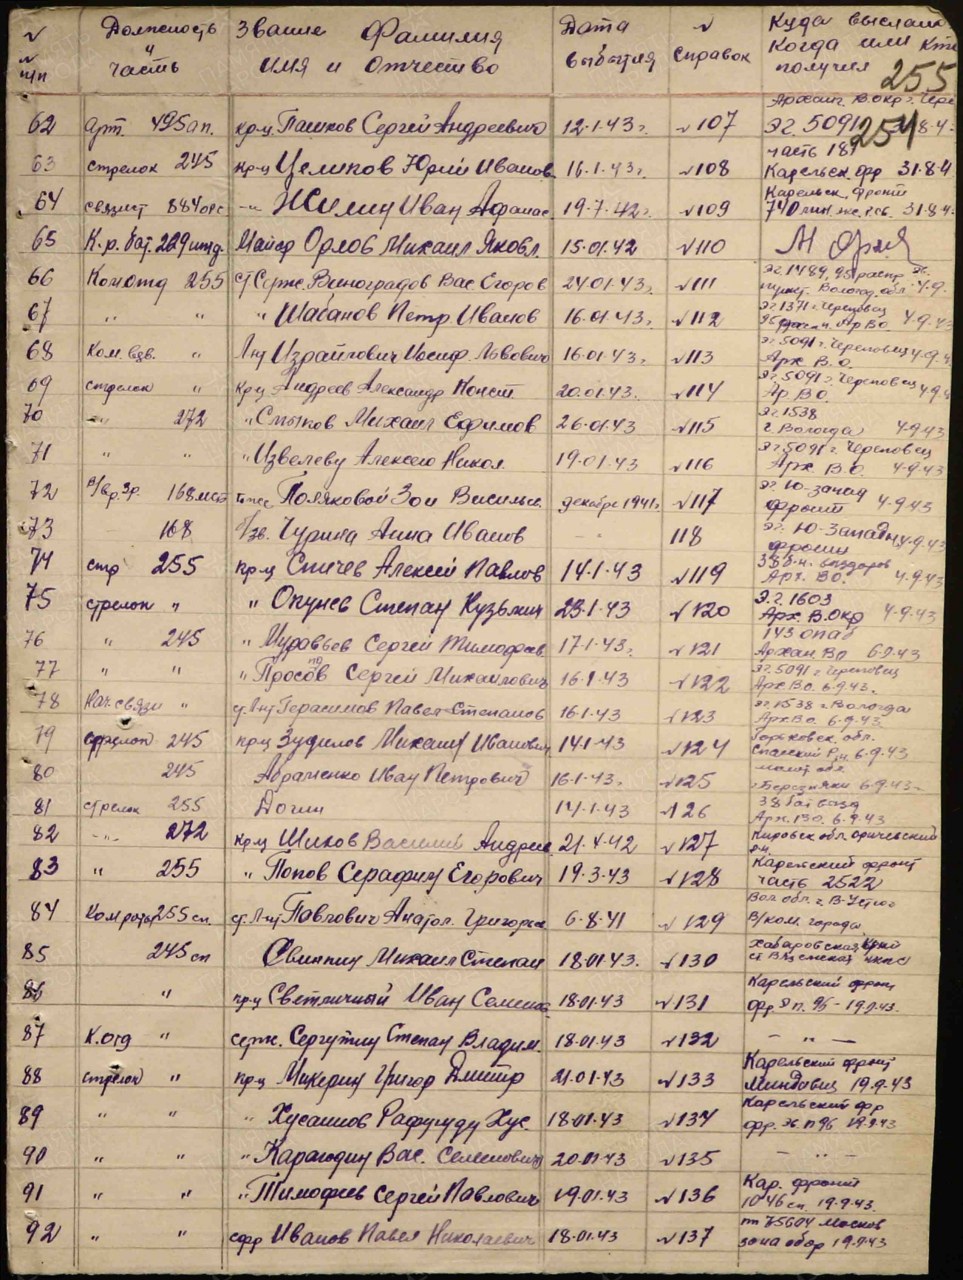 № п/п Должность и часть Звание Фамилия имя и отчество Дата выбытия № справок Куда выслана когда или кто получил
255
254
62 Арт. 495 ап. кр-ц Пашков Сергей Андреевич 12-1-43г. №107 Арханг. В.окр г. Чере эг. 5091 31-8-4
63 стрелок 245 кр-ц Целиков Юрий Иванов 16-1-43г. №108 часть 181 Карельск. фр 31-8-4
64 связист 884 орс -"- Жилин Иван Афанас 19-7-42г. №109 Карельск. фронт 31-8-4
65 К.р. бат. 229 Майор Орлов Михаил Яковл. 15.01.42 №110
66 Ком отд 255 ст Серж. Виноградов Вас Егоров 24.01.43г. №111 эг 1484, Вологод. обл. 4-9-
67 " " " Шабанов Петр Иванов 16.01.43г. №112 эг 1371 г. Череповец Ар ВО 4-9-43
68 Ком. взв. " Л-т Израйлович Иосиф Львович 16-01-43г. №113 эг 5091 г. Череповец 4-9-4 Арх В.О.
69 стрелок " кр-ц Андреев Александр Конст 20.01-43г. №114 эг 5091 г. Череповец 4-9-4 Ар ВО.
70 -"- 272 " Смыков Михаил Ефимов 26-01-43 №115 эг 1538 г. Вологда 4-9-43
71 " " " Извелеву Алексею Никол. 19-01-43 №116 эг 5091 г. Череповец Арх В.О. 4-9-43
72 168 Поляковой Зои Васильев. декабре 1941г. №117 эг Ю-запад фронт 4-9-43
73 168 Чурина Анна Иванов - 118 эг. Ю-Западн. 4-9-43 фронт
74 стр 255 кр-ц Спичев Алексей Павлов 14-1-43 №119 Арх. ВО. 4-9-43
75 стрелок " " Окунев Степан Кузьмич 23-1-43 №120 Э.г. 1603 Арх В.Окр 4-9-43
76 " 245 " Муровьев Сергей Тимофеев 17-1-43г. №121 143 опаб Архан. ВО 6-9-43
77 " " " Просов Сергей Михайлович 16-1-43 №122 эг. 5091 г Череповец Арх ВО. 6-9-43.
78 Нач. связи " ст. Л-т Герасимов Павел Степанов 16-1-43 №123 эг 1538 г. Вологда Арх ВО. 6-9-43
79 стрелок 245 кр-ц Зуфилов Михаил Иванович 14-1-43 №124 Горьковск. обл. Спасский Р-н 6-9-43
80 245 Абраменко Иван Петрович 16-1-43г. №125 г. Березняки 6-9-43
81 стрелок 255 Догин 14-1-43 126 38 бат Арх. ВО. 6-9-43
82 -"- 272 кр-ц Шиков Василий Андрее 21-4-42 №127 Кировск обл. Оричевский р-н
83 " 255 " Попов Серафим Егорович 19-3-43 №128 Карельский фронт часть 2522
84 Ком роты 255 сп. ст. Л-нт Павлович Анатол. Григорьев 6-8-41 №129 Вол. обл. г. В-Устюг В/ком. города
85 245 сп Свинкин Михаил Степан 18-01-43. №130 Хабаровская край ст Вяземская НКПС
86 " кр-ц Светличный Иван Семенов 18-01-43 №131 Карельский фронт фр э п. 96 - 19-9-43.
87 К.отд " серж. Сергутин Степан Владим. 18-01-43 №132 - " -
88 стрелок " кр-ц Микерин Григор Дмитр 21-01-43 №133 Карельский фронт 19.9-43
89 " " " Хусаинов Хус. 18-01-43 №134 Карельский фр фр. эг п 96 19-9-43
90 " " " Карагодин Вас. Семенович 20-01-43 №135 - " -
91 " " " Тимофеев Сергей Павлович 19-01-43 №136 Кар. фронт 1046 сп. 19-9-43.
92 " " сфр Иванов Павел Николаевич 18-01-43 №137 пп 75604 Москов зона обор 19-9-43